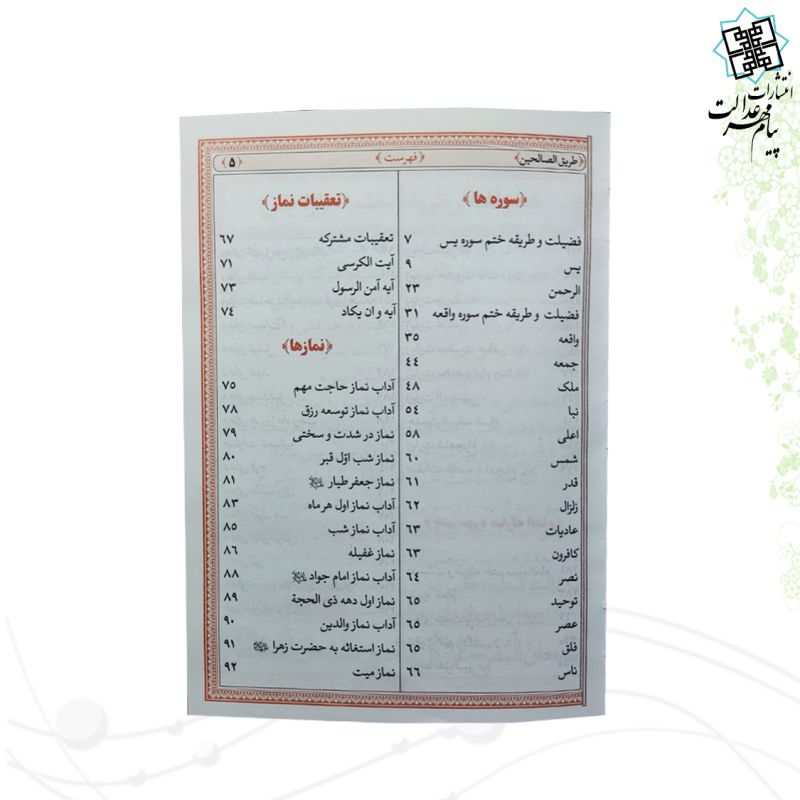 انتشارات
پیام مهر عدالت
طریق الصالحین
﴿فهرست﴾
﴿۵﴾
﴿سوره ها﴾
فضیلت و طریقه ختم سوره یس ۷
یس ۹
الرحمن ۲۳
فضیلت و طریقه ختم سوره واقعه ۳۱
واقعه ۳۵
جمعه ۴۴
ملک ۴۸
نبا ۵۴
اعلی ۵۸
شمس ۶۰
قدر ۶۱
زلزال ۶۲
عادیات ۶۳
کافرون ۶۳
نصر ۶۴
توحید ۶۵
عصر ۶۵
فلق ۶۵
ناس ۶۶
﴿تعقیبات نماز﴾
تعقیبات مشترکه ۶۷
آیت الکرسی ۷۱
آیه آمن الرسول ۷۳
آیه و ان یکاد ۷۴
﴿نمازها﴾
آداب نماز حاجت مهم ۷۵
آداب نماز توسعه رزق ۷۸
نماز در شدت و سختی ۷۹
نماز شب اوّل قبر ۸۰
نماز جعفر طیار ۸۱
آداب نماز اول هر ماه ۸۳
آداب نماز شب ۸۵
نماز غفیله ۸۶
آداب نماز امام جواد ۸۸
نماز اول دهه ذی الحجة ۸۹
آداب نماز والدین ۹۰
نماز استغاثه به حضرت زهرا ۹۱
نماز میت ۹۲